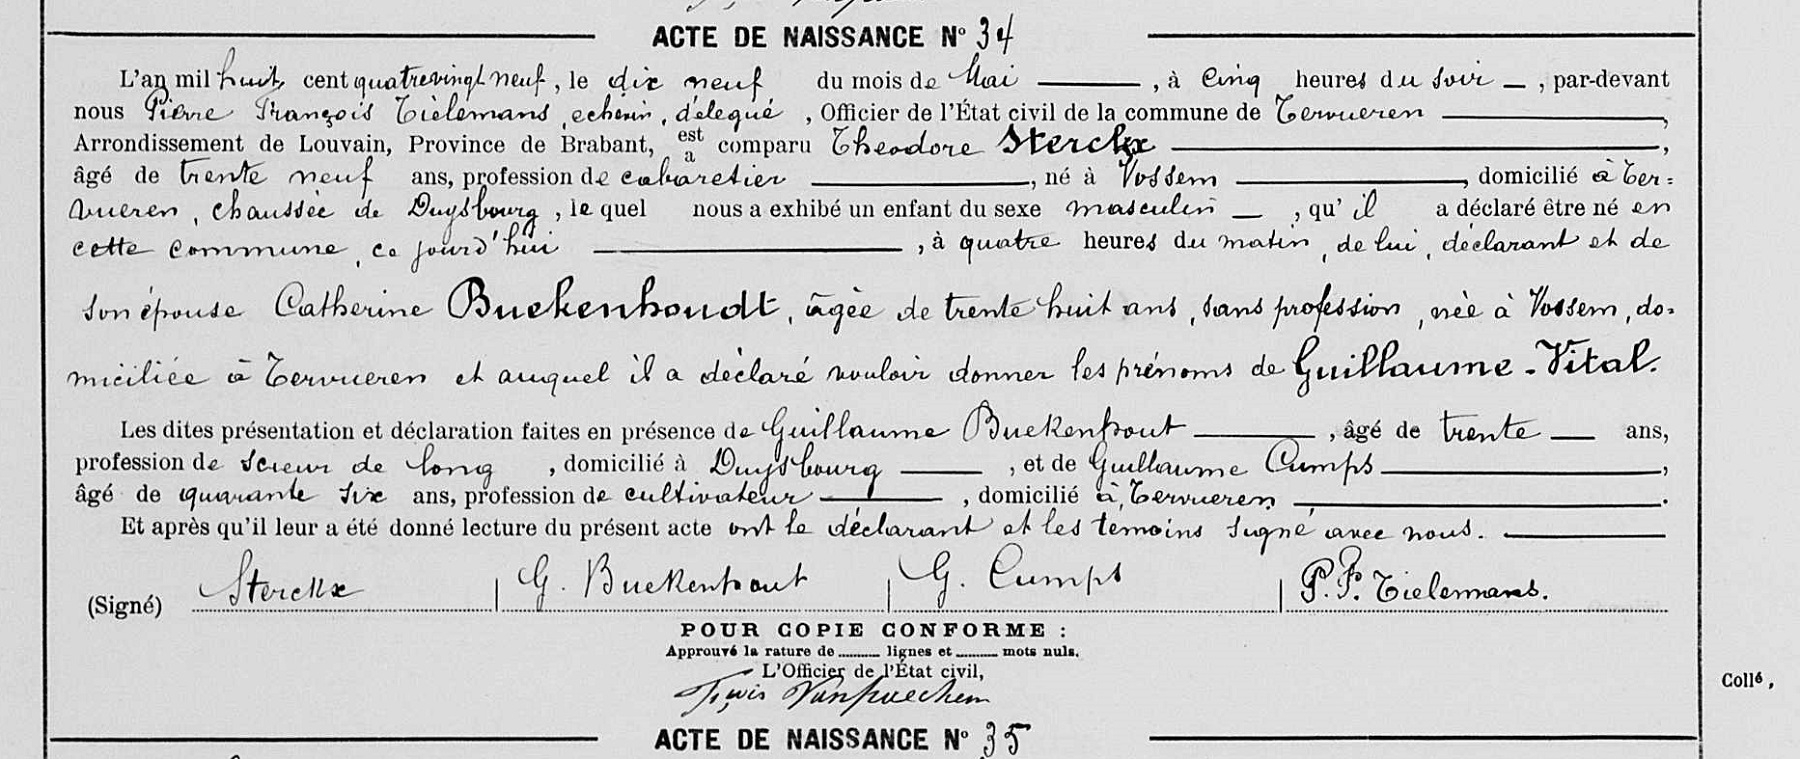 ACTE DE NAISSANCE N° 34
L'an mil huit cent quatrevingt neuf, le dix neuf du mois de Mai, à cinq heures du soir, par-devant
nous Pierre François Tielemans, echevin, délegué, Officier de l'État civil de la commune de Tervueren,
Arrondissement de Louvain, Province de Brabant, est a comparu Theodore Sterckx,
âgé de trente neuf ans, profession de cabaretier, né à Vossem, domicilié à Ter=
vueren, chaussée de Duysbourg, le quel nous a exhibé un enfant du sexe masculin, qu'il a déclaré être né en
cette commune, ce jourd'hui, à quatre heures du matin, de lui, déclarant et de
son épouse Catherine Buekenhoudt, âgée de trente huit ans, sans profession, née à Vossem, do=
miciliée à Tervueren et auquel il a déclaré vouloir donner les prénoms de Guillaume-Vital.
Les dites présentation et déclaration faites en présence de Guillaume Buekenhout, âgé de trente ans,
profession de scieur de long, domicilié à Duysbourg, et de Guillaume Cumps,
âgé de quarante six ans, profession de cultivateur, domicilié à Tervueren.
Et après qu'il leur a été donné lecture du présent acte ont le déclarant et les témoins signé avec nous.
(Signé) Sterckx | G. Buekenhout | G. Cumps | P. F. Tielemans.
POUR COPIE CONFORME :
Approuvé la rature de ........ lignes et ........ mots nuls.
L'Officier de l'État civil,
Collé,
ACTE DE NAISSANCE N° 35